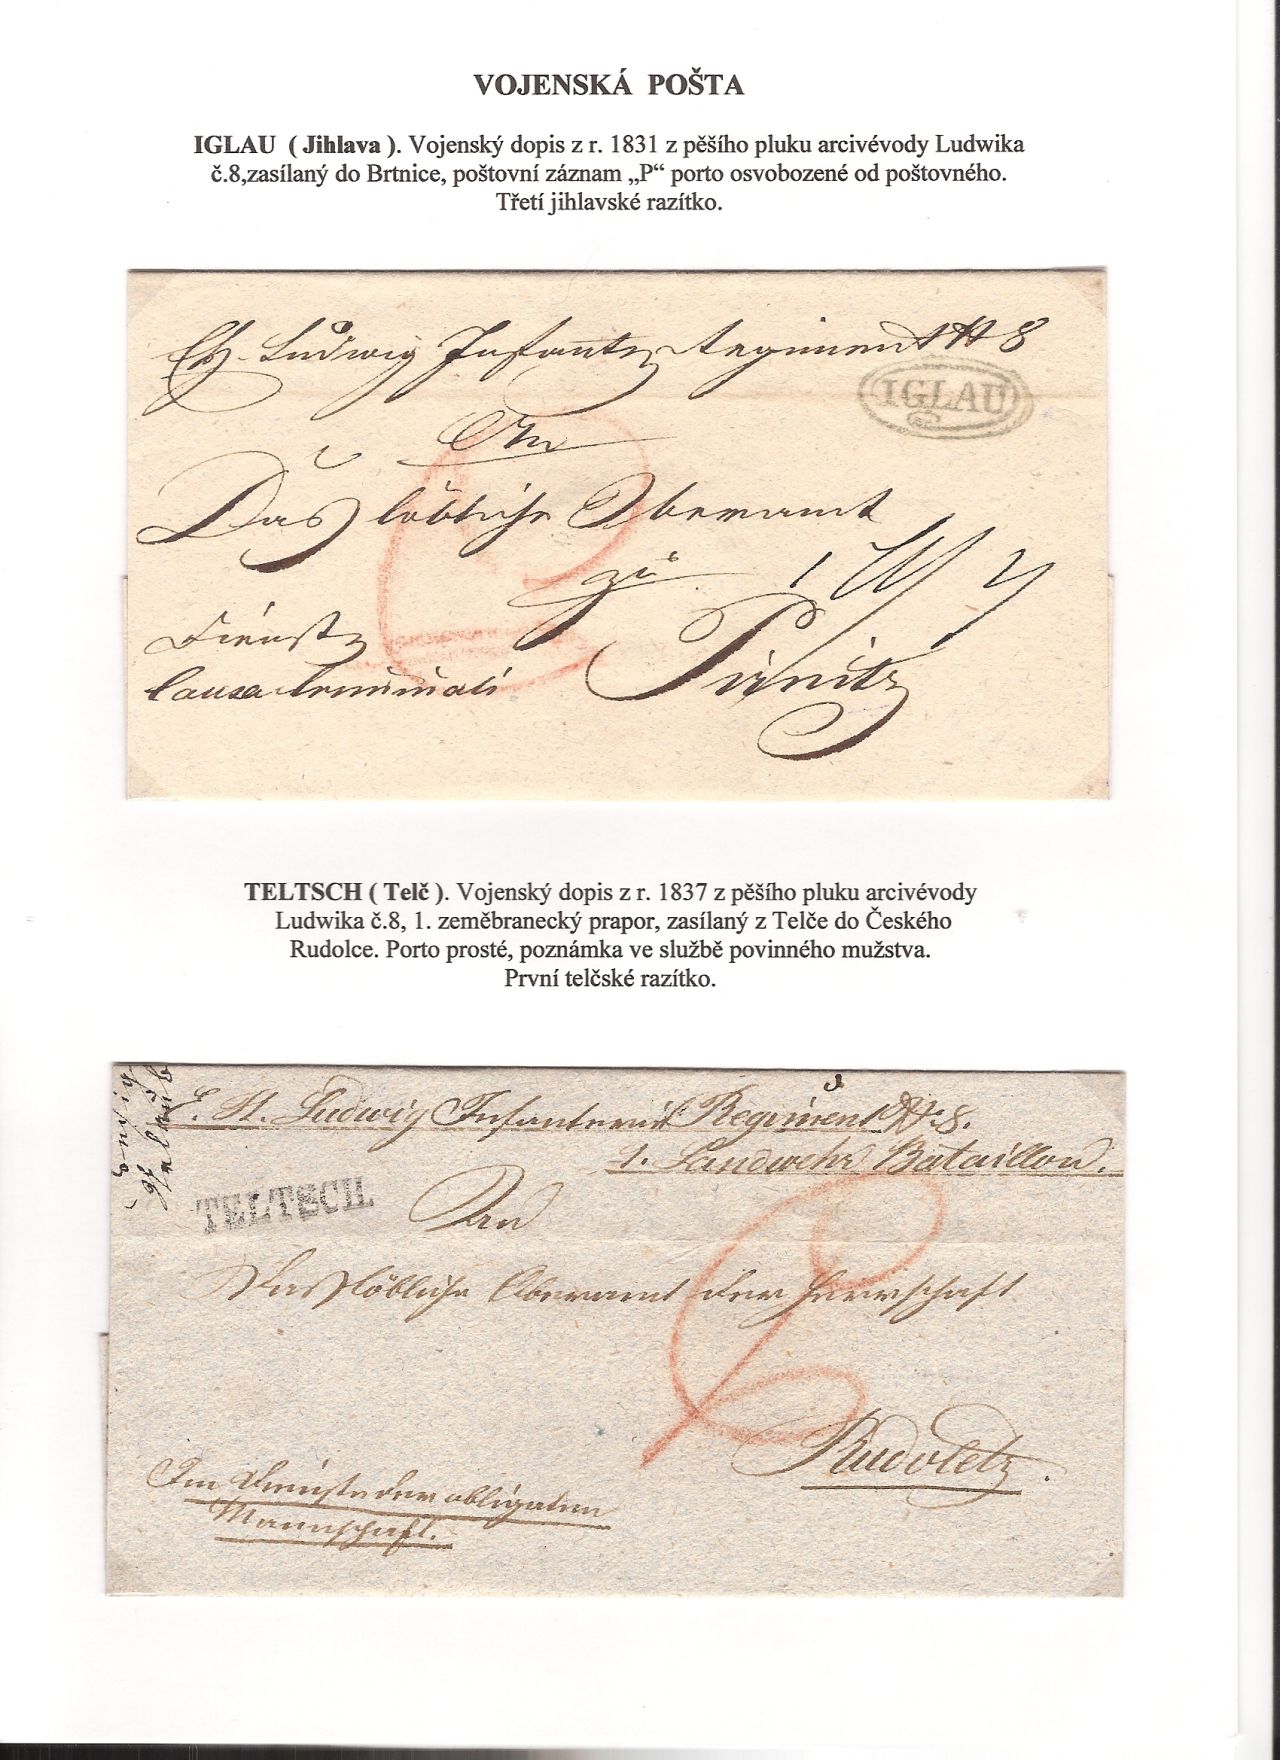 VOJENSKÁ POŠTA
IGLAU ( Jihlava ). Vojenský dopis z r. 1831 z pěšího pluku arcivévody Ludwika
č.8,zasílaný do Brtnice, poštovní záznam „P“ porto osvobozené od poštovného.
Třetí jihlavské razítko.
Ludwig Infantr Regiment № 8
IGLAU
An
Das löbliche Oberamt
zu
Dienst
Causa Criminali
Pirnitz
TELTSCH ( Telč ). Vojenský dopis z r. 1837 z pěšího pluku arcivévody
Ludwika č.8, 1. zeměbranecký prapor, zasílaný z Telče do Českého
Rudolce. Porto prosté, poznámka ve službě povinného mužstva.
První telčské razítko.
E. H. Ludwig Infanterie Regiment № 8.
1. Landwehr Bataillon.
TELTSCH
An
Das löbliche Oberamt der Herrschaft
Rudoletz.
Im Dienste der obligaten
Mannschaft.